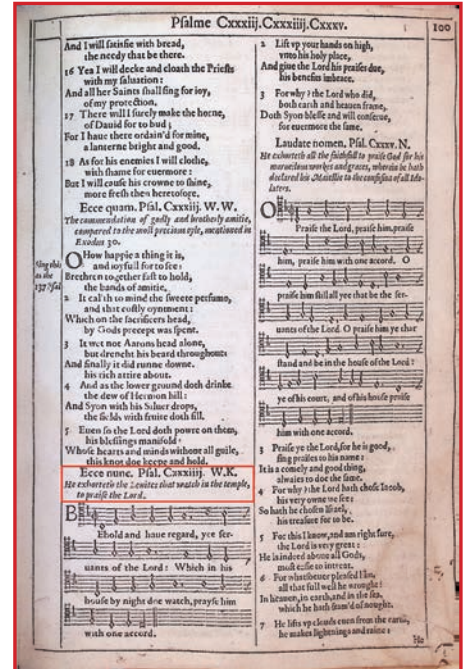 Psalme Cxxxiij.Cxxxiiij.Cxxxv.
100
And I will satisfie with bread,
the needy that be there.
16 Yea I will decke and cloath the Priests
with my saluation:
And all her Saints shall sing for ioy,
of my protection.
17 There will I surely make the horne,
of Dauid for to bud;
For I haue there ordain'd for mine,
a lanterne bright and good.
18 As for his enemies I will clothe,
with shame for euermore:
But I will cause his crowne to shine,
more fresh then heretofore.
Ecce quam. Psal. Cxxxiij. W. W.
The commendation of godly and brotherly amitie,
compared to the most precious oyle, mentioned in
Exodus 30.
Sing this
as the
137 Psal
O How happie a thing it is,
and ioyfull for to see:
Brethren together fast to hold,
the bands of amitie.
2 It cal'th to mind the sweete perfume,
and that costly oyntment:
Which on the sacrificers head,
by Gods precept was spent.
3 It wet not Aarons head alone,
but drencht his beard throughout:
And finally it did runne downe.
his rich attire about.
4 And as the lower ground doth drinke
the dew of Hermon hill:
And Syon with his Siluer drops,
the fields with fruite doth fill.
5 Euen so the Lord doth powre on them,
his blessings manifold:
Whose hearts and minds without all guile,
this knot doe keepe and hold.
Ecce nunc. Psal. Cxxxiiij. W.K.
He exhorteth the Leuites that watch in the temple,
to praise the Lord.
BEhold and haue regard, yee ser-
uants of the Lord: Which in his
house by night doe watch, prayse him
with one accord.
2 Lift vp your hands on high,
vnto his holy place,
And giue the Lord his praises due,
his benefits imbrace.
3 For why? the Lord who did,
both earth and heauen frame,
Doth Syon blesse and will conserue,
for euermore the same.
Laudate nomen. Psal. Cxxxv. N.
He exhorteth all the faithfull to praise God for his
maruelous workes and graces, wherein he hath
declared his Maiestie to the confusion of all Ido-
laters.
O Praise the Lord, praise him, praise
him, praise him with one accord. O
praise him still all yee that be the ser-
uants of the Lord. O praise him ye that
stand and be in the house of the Lord:
ye of his court, and of his house praise
him with one accord.
3 Praise ye the Lord, for he is good,
sing praises to his name:
It is a comely and good thing,
alwaies to doe the same.
4 For why? the Lord hath chose Iacob,
his very owne we see:
So hath he chosen Israel,
his treasure for to be.
5 For this I know, and am right sure,
the Lord is very great:
He is indeed aboue all Gods,
most easie to intreat.
6 For whatsoeuer pleased him,
all that full well he wrought:
In heauen, in earth, and in the sea,
which he hath fram'd of nought.
7 He lifts vp clouds euen from the earth,
he makes lightnings and raine:
He